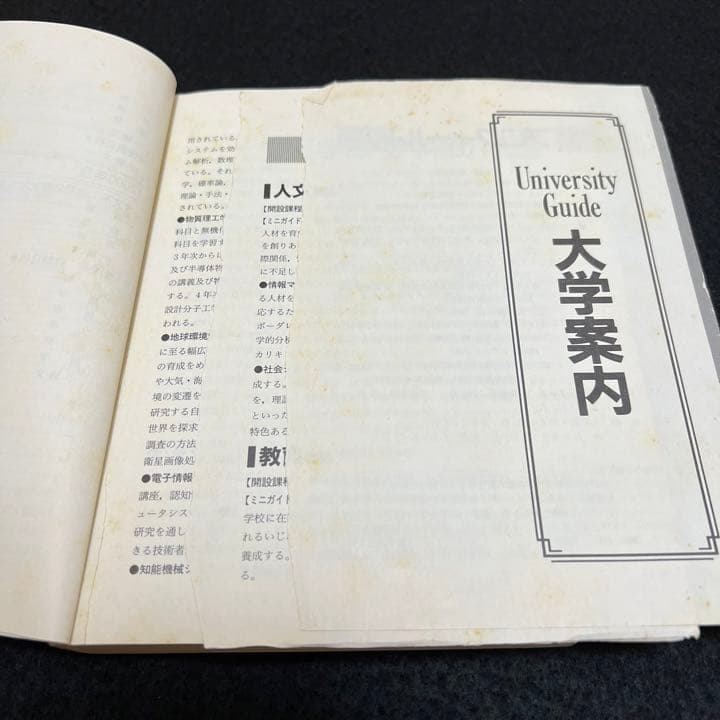 用されている。
システムを効
ム解析，数理
ている。それ
学，確率論，
理論・手法・
されている。
●物質理工学
科目と無機化
科目を学習す
3年次からに
及び半導体物
の講義及び物
する。4年次
設計分子工学
われる。
●地球環境
に至る幅広
の育成をめ
や大気・海
境の変遷を
研究する自
世界を探求
調査の方法
衛星画像処
●電子情報
講座，認知
ュータシス
研究を通し
きる技術者
●知能機械シ
人文
【開設課程
【ミニガイド
人材を育
を創りあ
際関係，
に不足し
●情報マ
る人材を
応するた
ボーダレ
学的分析
カリキ
●社会シ
成する。
を，理論
といった
特色ある
教育
【開設課程
【ミニガイド
学校に在
れるいじ
養成する。
る。
University
Guide
大学案内